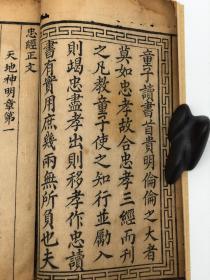 童子讀書首貴明倫倫之大者
莫如忠孝故合忠孝三經而刊
之凡教童子使之知行並勵入
則竭忠盡孝出則移孝作忠讀
書有實用庶幾兩無所負也夫
忠經正文
天地神明章第一